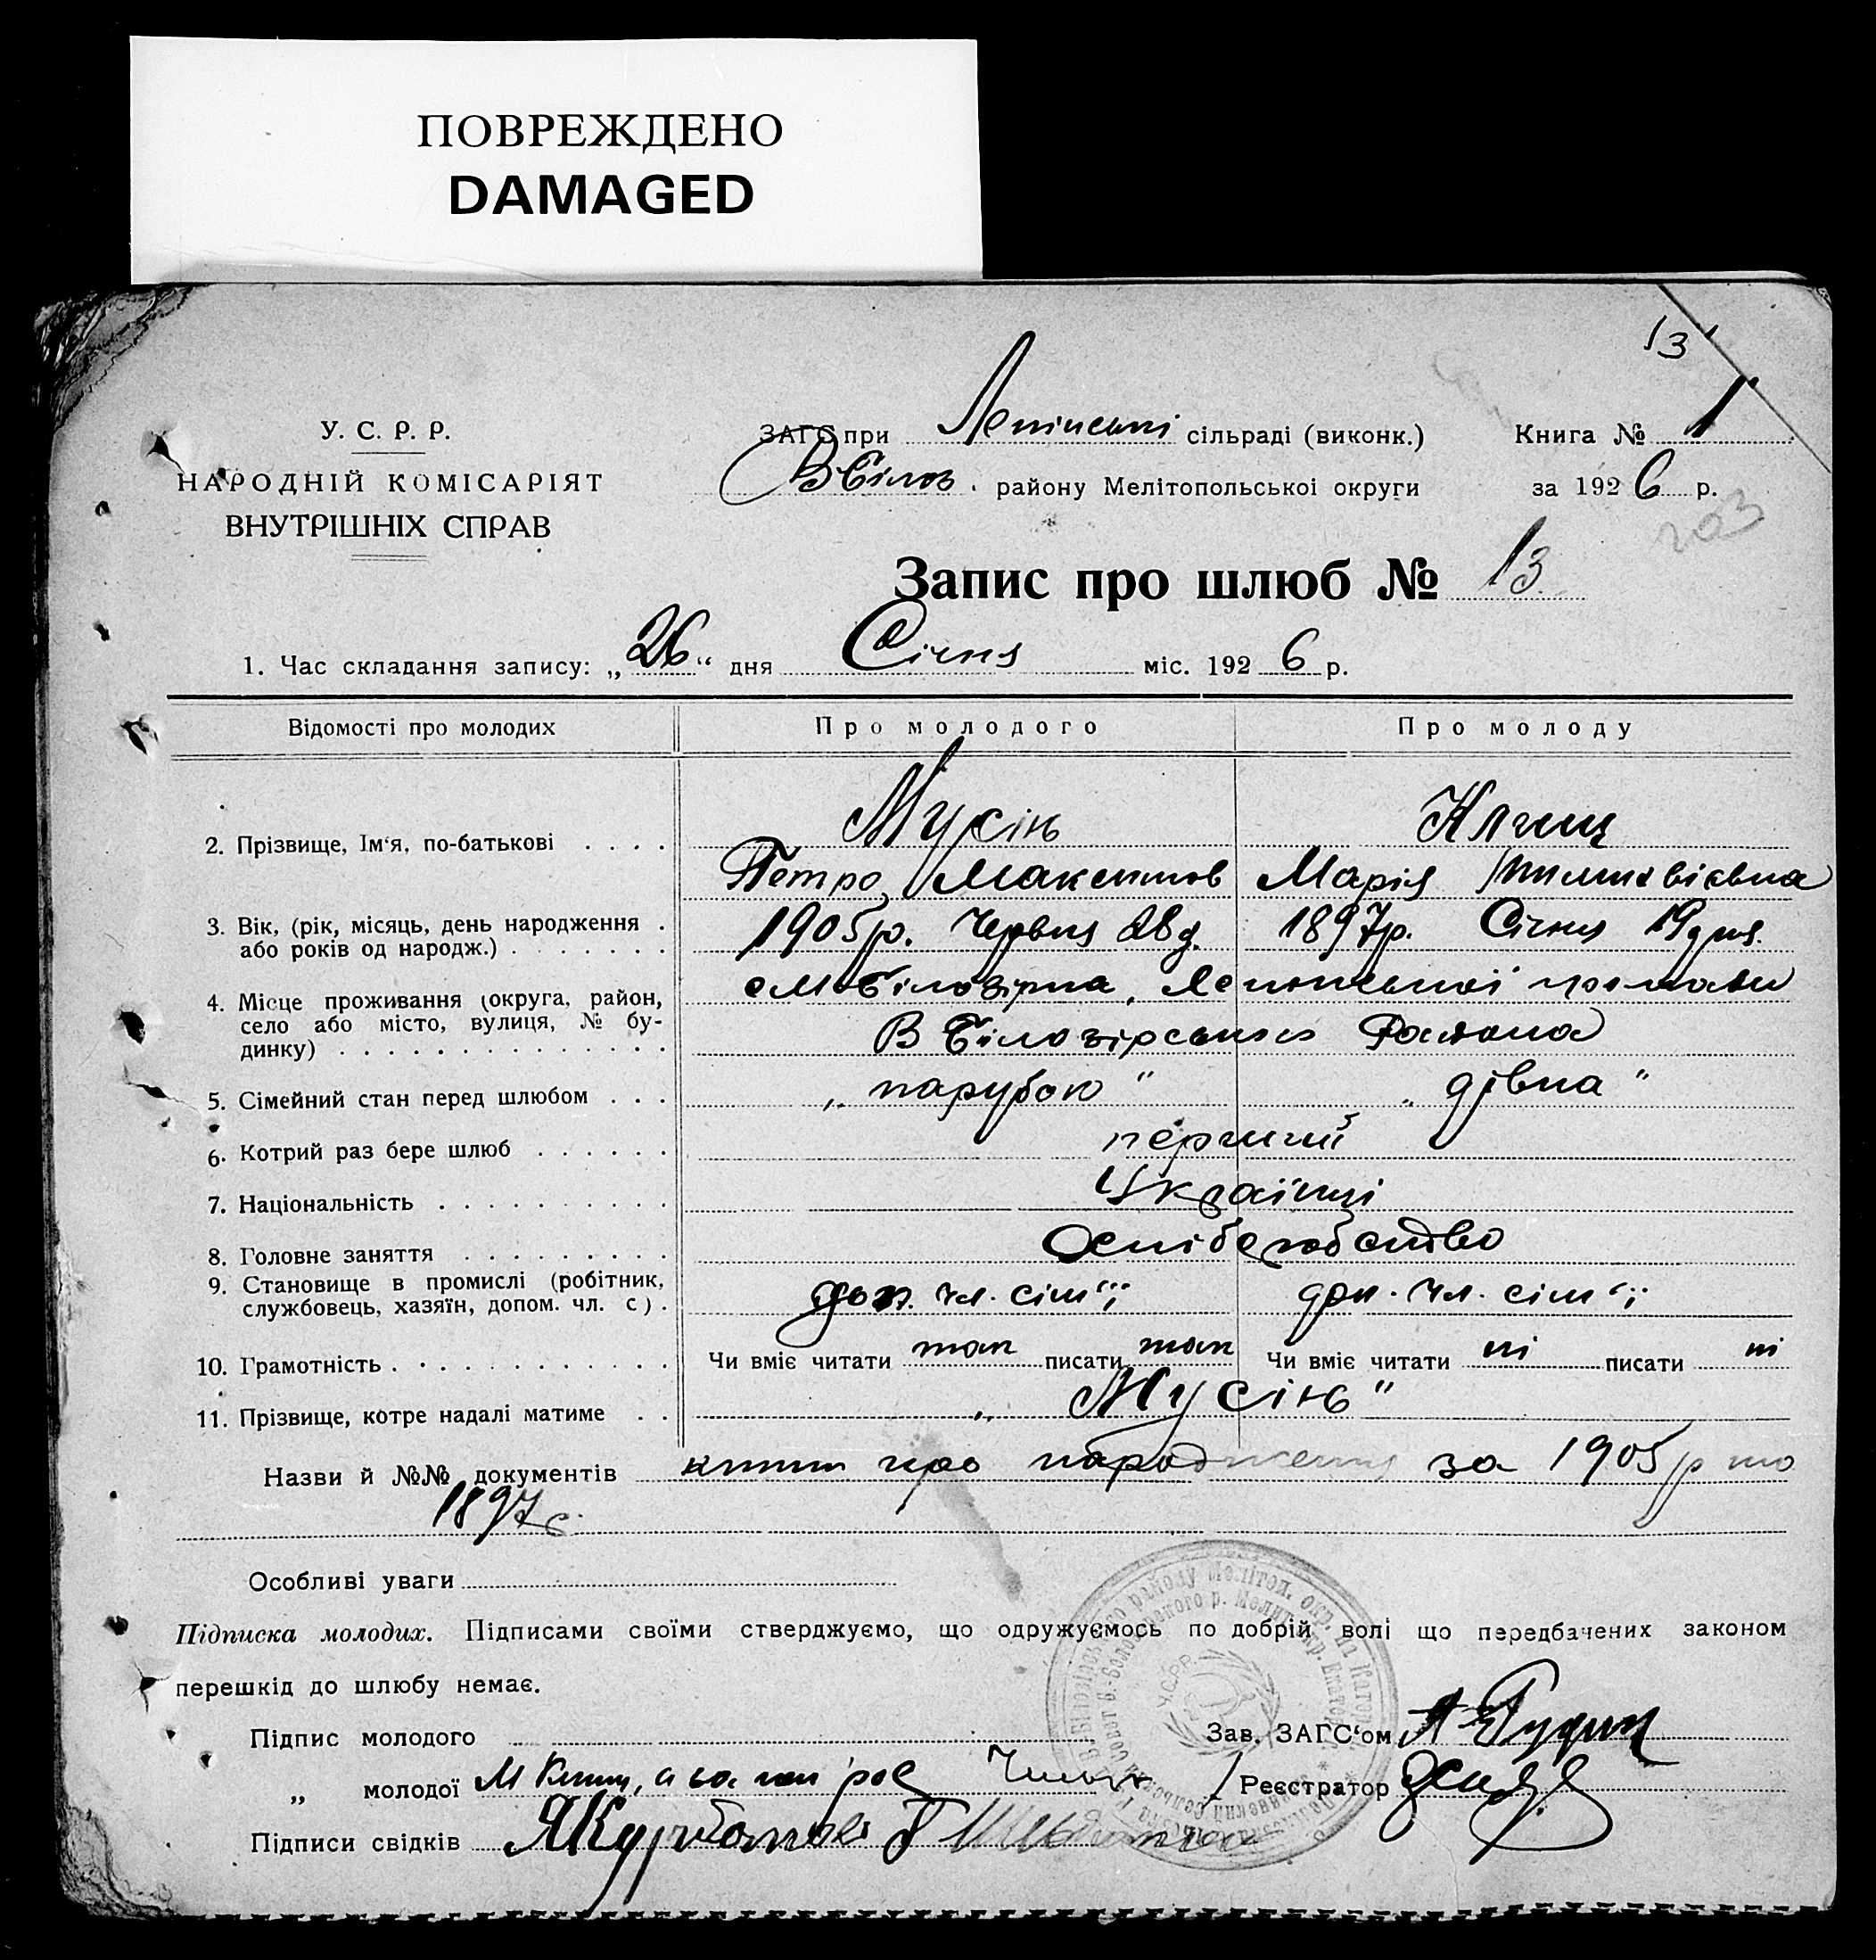 ПОВРЕЖДЕНО
DAMAGED
13
У. С. Р. Р.
НАРОДНІЙ КОМІСАРІЯТ
ВНУТРІШНІХ СПРАВ
ЗАГС при Ленінські сільраді (виконк.)
ВБілоз. району Мелітопольської округи
Книга № 1
за 1926 р.
203
Запис про шлюб № 13
1. Час складання запису: „26“ дня Січня міс. 1926 р.
Відомості про молодих Про молодого Про молоду
2. Прізвище, Ім‘я, по-батькові . . . . Мусінь
Петро Максимов Марія
3. Вік, (рік, місяць, день народження . 1905р. Червня 28 д. 1897р. Січня 19 дня.
або років од народж.) . . . . . . .
4. Місце проживання (округа, район, Ленінської громади
село або місто, вулиця, № бу-
динку) . . . . . . . . . . . . . . В Білозірського Района
5. Сімейний стан перед шлюбом . . . „парубок" „дівка"
6. Котрий раз бере шлюб . . . . . . перший
7. Національність . . . . . . . . . . Українці
8. Головне заняття . . . . . . . . .
9. Становище в промислі (робітник, доп. чл. сім'ї доп. чл. сім'ї
службовець, хазяїн, допом. чл. с) .
10. Грамотність . . . . . . . . . . . Чи вміє читати так писати так Чи вміє читати ні писати ні
11. Прізвище, котре надалі матиме . . „Мусінь"
Назви й №№ документів книги про народження за 1905р та
1897 р.
Особливі уваги
Підписка молодих. Підписами своїми стверджуємо, що одружуємось по добрій волі що передбачених законом
перешкід до шлюбу немає.
Підпис молодого
Зав. ЗАГС‘ом
„ молодої
Реєстратор
Підписи свідків